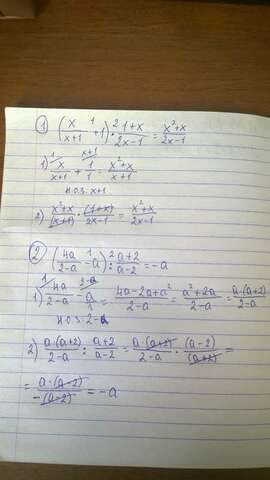 ① (x/(x+1) + 1) · (1+x)/(2x-1) = (x²+x)/(2x-1)
1) x/(x+1) + 1/1 = (x²+x)/(x+1)
н.о.з: x+1
2) (x²+x)/(x+1) · (1+x)/(2x-1) = (x²+x)/(2x-1)
② (4a/(2-a) - a) : (a+2)/(a-2) = -a
1) 4a/(2-a) - a/1 = (4a-2a+a²)/(2-a) = (a²+2a)/(2-a) = a·(a+2)/(2-a)
н.о.з: 2-a
2) a·(a+2)/(2-a) : (a+2)/(a-2) = a·(a+2)/(2-a) · (a-2)/(a+2) =
= a·(a-2)/-(a-2) = -a